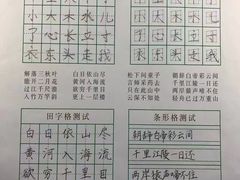 小 大 木 水 儿
了 心 长 立 寸
衣 东 头 走 我
了 心 长 立 寸
衣 东 头 走 我
解落三秋叶 白日依山尽
能开二月花 黄河入海流
过江千尺浪 欲穷千里目
入竹万竿斜 更上一层楼
松下问童子 朝辞白帝彩云间
言师采药去 千里江陵一日还
只在此山中 两岸猿声啼不住
云深不知处
田字格测试
白日依山尽
黄河入海流
欲穷千里目
条形格测试
朝辞白帝彩云间
千里江陵一日还
两岸猿声啼不住